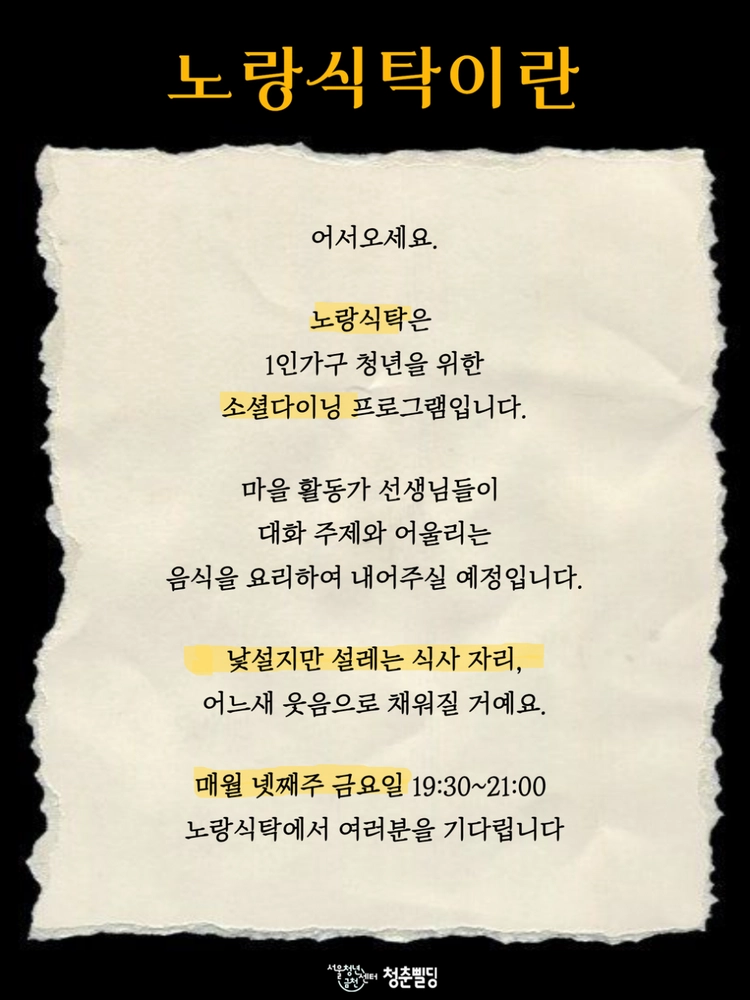 노랑식탁이란
어서오세요.
노랑식탁은
1인가구 청년을 위한
소셜다이닝 프로그램입니다.
마을 활동가 선생님들이
대화 주제와 어울리는
음식을 요리하여 내어주실 예정입니다.
낯설지만 설레는 식사 자리,
어느새 웃음으로 채워질 거예요.
매월 넷째주 금요일 19:30~21:00
노랑식탁에서 여러분을 기다립니다
서울청년
센터
금천
청춘삘딩